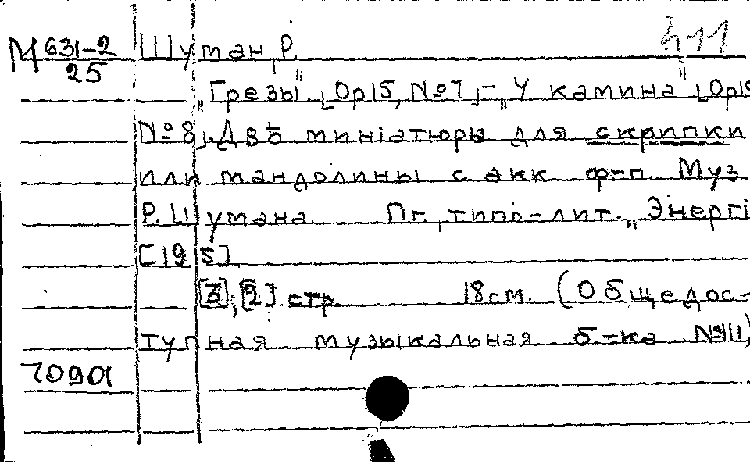 М 631-2
25
Шуман, Р.
411
„Грезы" [Op15, №7] - „У камина" [Op15
№8] Двѣ миніатюры для скрипки
или мандолины с акк ф-п Муз
Р. Шумана Пг., типо-лит. „Энергі
[1915]
[3]; [2] стр. 18 см. (Общедос-
тупная музыкальная б-ка №411)
7090